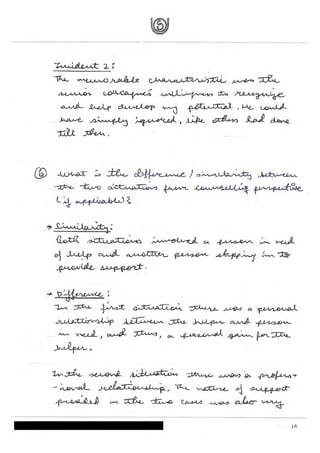 Incident 2:
The memorable characteristic was the
senior colleague's willingness to recognize
and help develop my potential. He could
have simply ignored, like others had done
till then.
6 What is the difference / similarity between
the two situations from counselling perspective
(if applicable)?
→ Similarity:
Both situations involved a person in need
of help and another person stepping in to
provide support.
→ Difference:
In the first situation there was a personal
relationship between the helper and person
in need, and thus, a personal gain for the
helper.
In the second situation there was a profess-
-ional relationship. The nature of support
provided in the two cases was also very